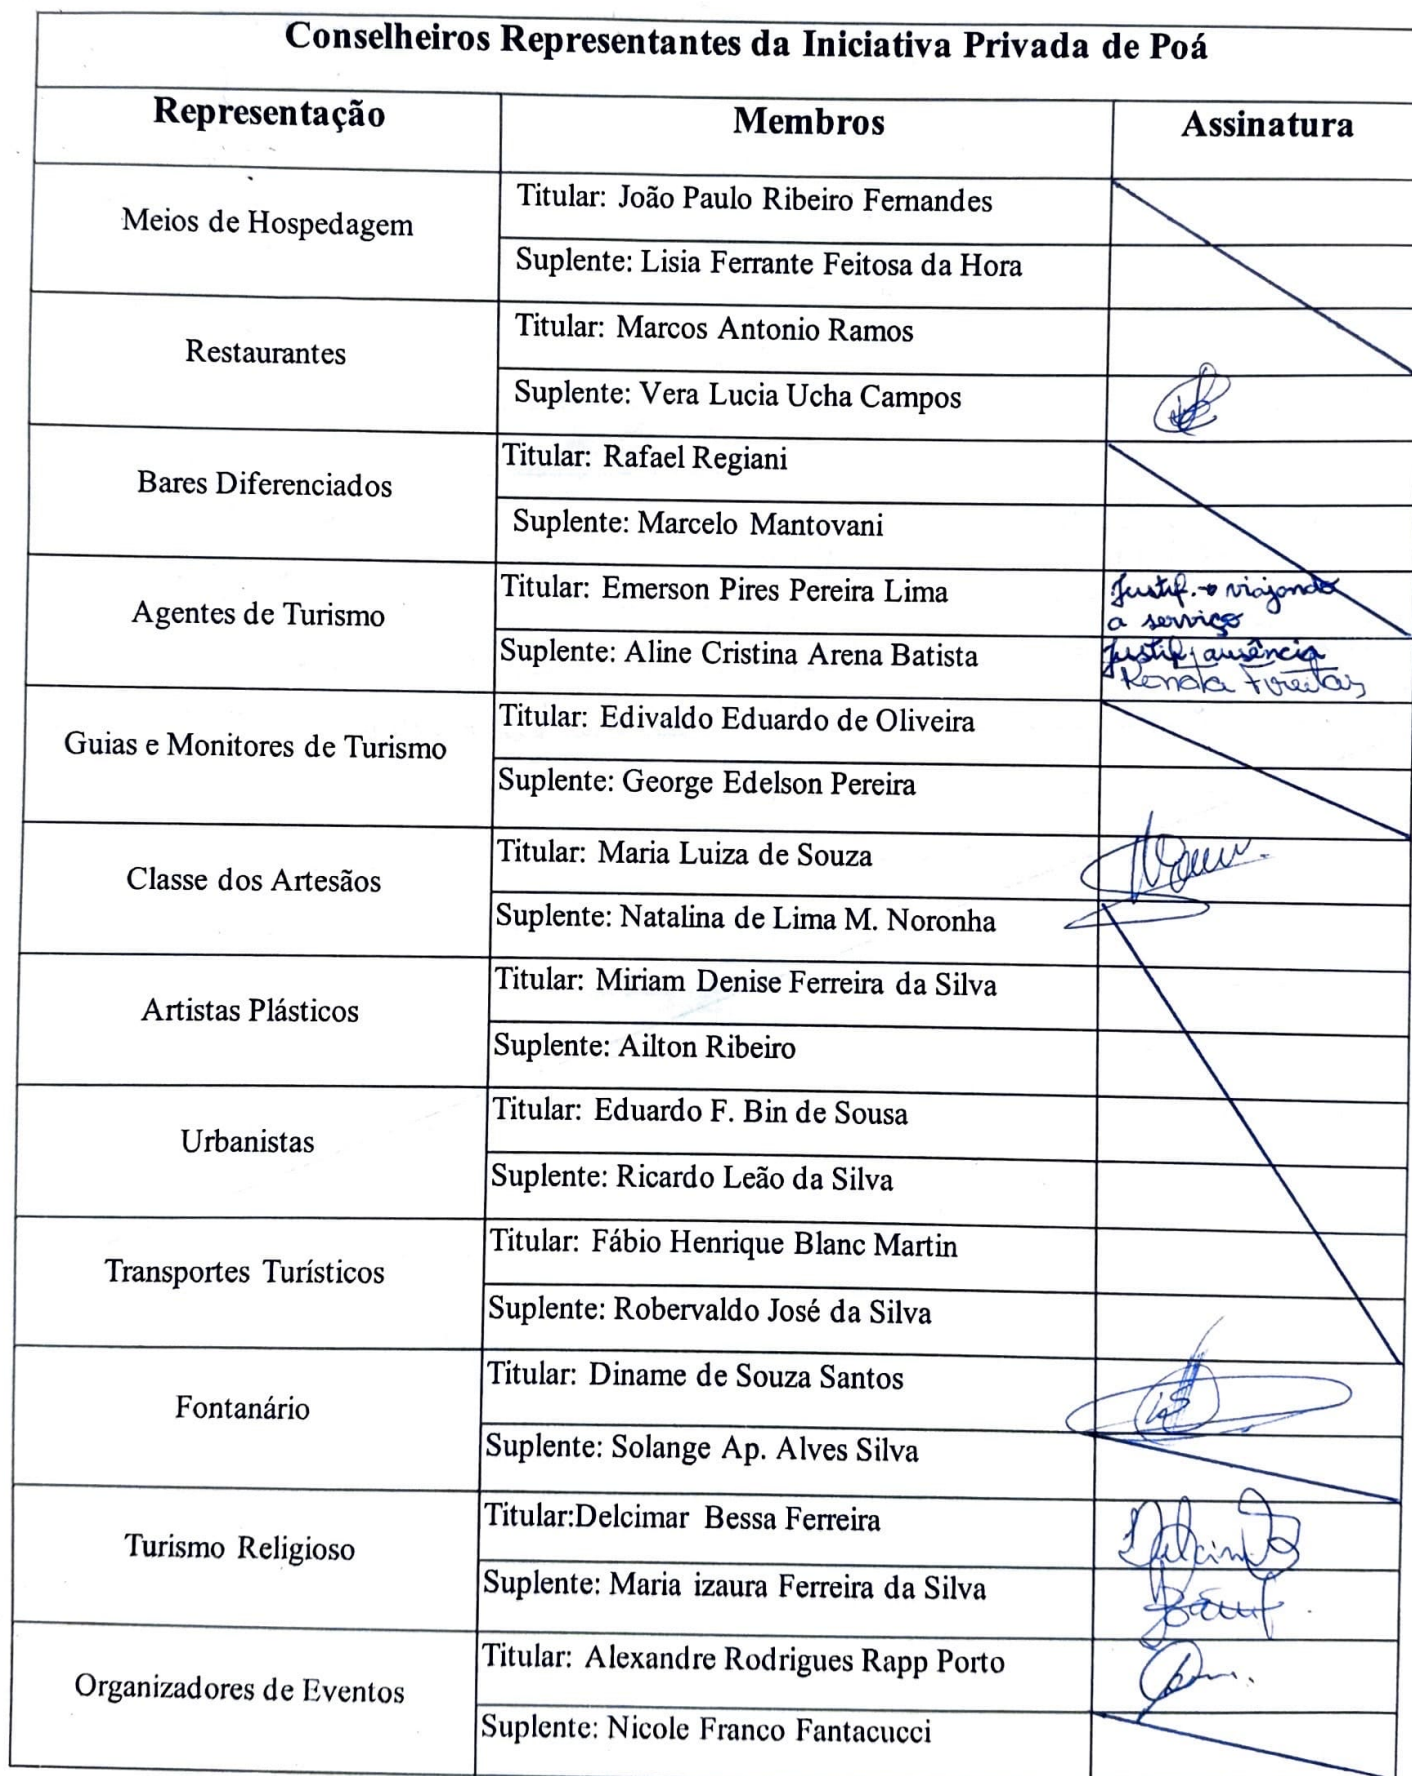 Conselheiros Representantes da Iniciativa Privada de Poá
Representação Membros Assinatura
Meios de Hospedagem
Titular: João Paulo Ribeiro Fernandes
Suplente: Lisia Ferrante Feitosa da Hora
Restaurantes
Titular: Marcos Antonio Ramos
Suplente: Vera Lucia Ucha Campos
Bares Diferenciados
Titular: Rafael Regiani
Suplente: Marcelo Mantovani
Agentes de Turismo
Titular: Emerson Pires Pereira Lima
Justif. → viajando
a serviço
Suplente: Aline Cristina Arena Batista
Justif. ausência
Renata Freitas
Guias e Monitores de Turismo
Titular: Edivaldo Eduardo de Oliveira
Suplente: George Edelson Pereira
Classe dos Artesãos
Titular: Maria Luiza de Souza
Suplente: Natalina de Lima M. Noronha
Artistas Plásticos
Titular: Miriam Denise Ferreira da Silva
Suplente: Ailton Ribeiro
Urbanistas
Titular: Eduardo F. Bin de Sousa
Suplente: Ricardo Leão da Silva
Transportes Turísticos
Titular: Fábio Henrique Blanc Martin
Suplente: Robervaldo José da Silva
Fontanário
Titular: Diname de Souza Santos
Suplente: Solange Ap. Alves Silva
Turismo Religioso
Titular:Delcimar Bessa Ferreira
Suplente: Maria izaura Ferreira da Silva
Organizadores de Eventos
Titular: Alexandre Rodrigues Rapp Porto
Suplente: Nicole Franco Fantacucci